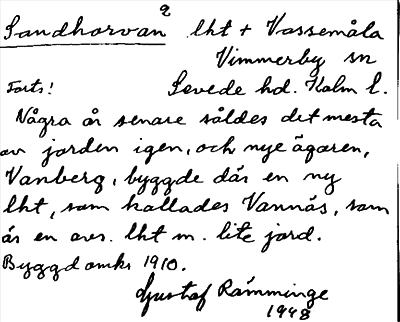 Sandhorvan 2 lht + Vassemåla
Vimmerby sn
Forts! Sevede hd. Kalm l.
Några år senare såldes det mesta
av jorden igen, och nye ägaren,
Vanberg, byggde där en ny
lht, som kallades Vannäs, som
är en avs. lht m. lite jord.
Byggd omkr 1910.
Gustaf Rämminge
1948